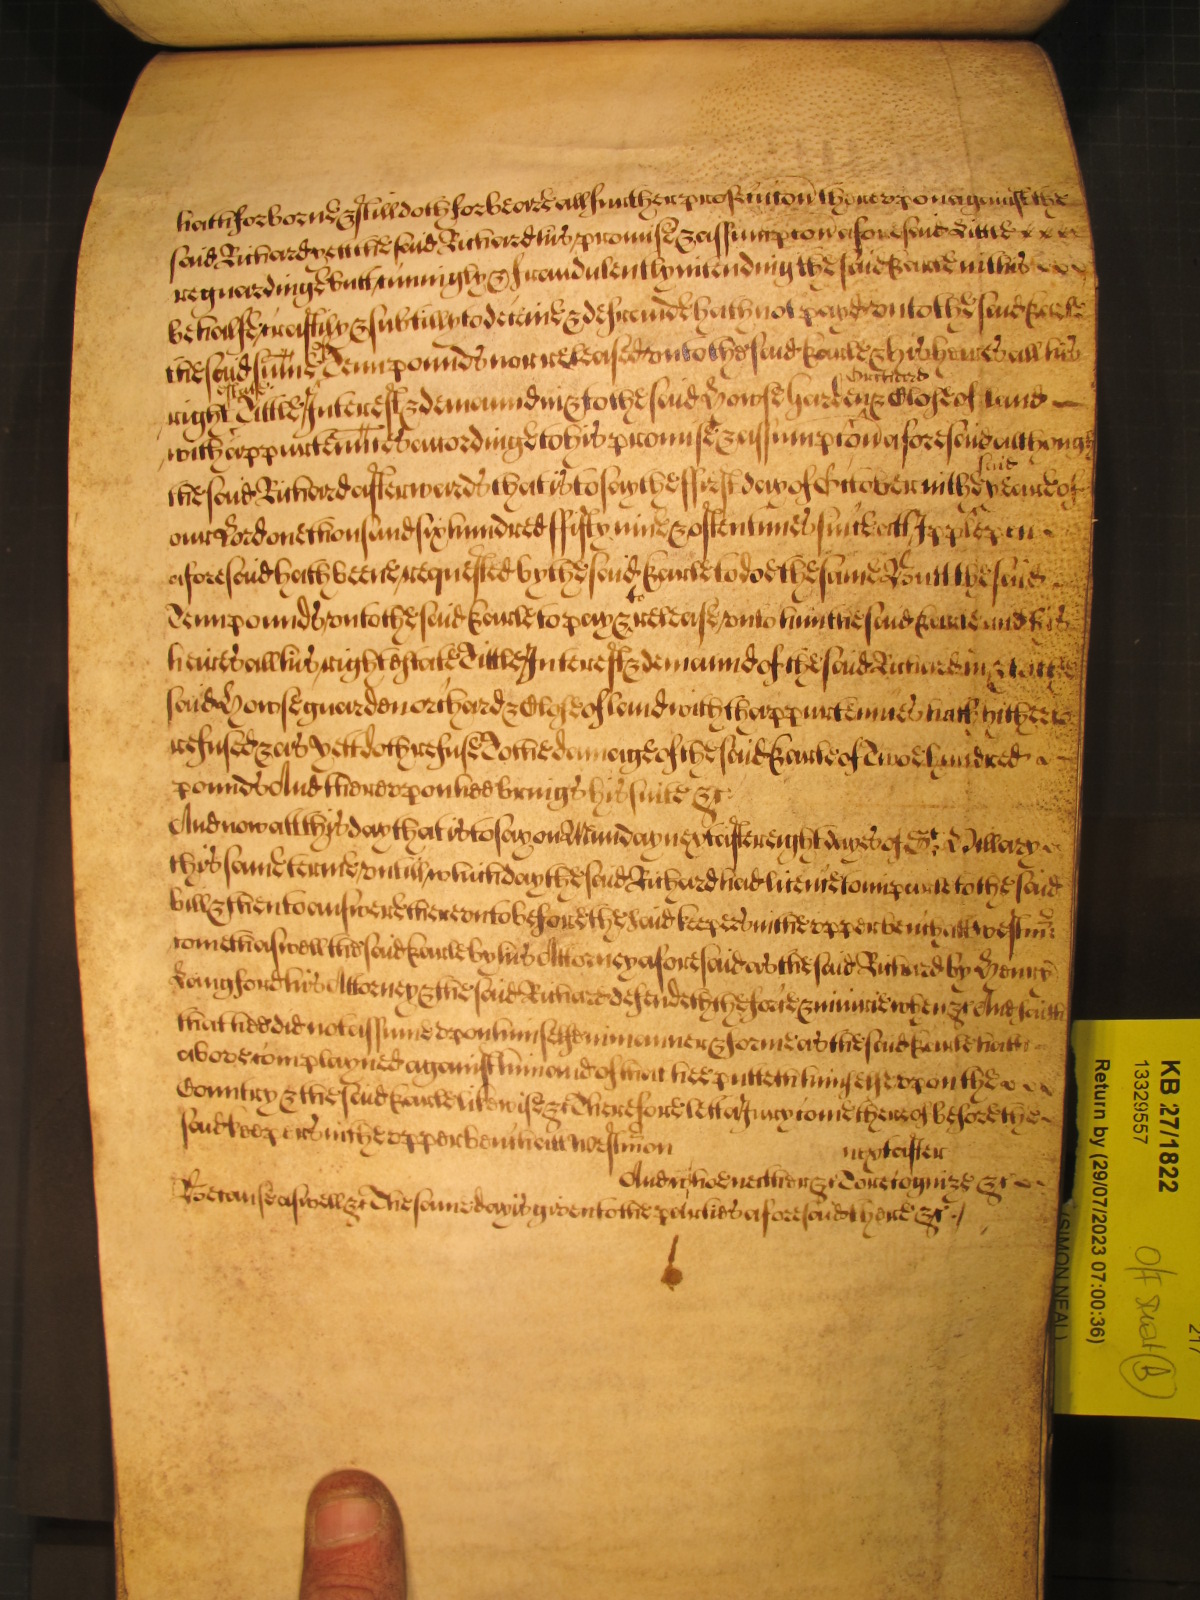 hath forborne & still doth forbeare all further prosecucion thereupon against the
said Richard yett the said Richard his promise & assumpcon aforesaid little
reguardinge butt cunningly & fraudulently intending the said Earle in this
behalfe craftily & subtilly to deceive & defraude hath not payd unto the said Earle
the said sume of Tenn pounds nor released unto the said Earle & his heires all his
right estate Tittle Interest & demaund in & to the said Howse garden Orchard & Close of land
with thappurtennces according to his promise & assumpcon aforesaid although
the said Richard afterwards that is to say the ffirst day of October in the said yeare of
our Lord one thousand six hundred ffifty nine & often times since att
aforesaid hath beene requested by the said Earle to doe the same Butt the said
Tenn pounds unto the said Earle to pay & to release unto him the said Earle and his
heires all his right estate Tittle Interest & demaund of the said Richard in & to the
said Howse guarden orchard & Close of land with thappurtennces hath hitherto
refused & as yett doth refuse To the damage of the said Earle of Two hundred
pounds And thereupon hee brings his suite &c
And now att this day that is to say on Munday next after eight dayes of St. Hillary
this same terme untill which day the said Richard had licence to imparle to the said
bill & then to answere thereunto before the said keepers in the upper bench att Westmr
cometh aswell the said Earle by his Attorney aforesaid as the said Richard by Henry
Langford his Attorney & the said Richard defendeth the force & iniurie when &c And saith
that hee did not assume upon himselfe in manner & forme as the said Earle hath
above complayned against him and of that hee putteth himselfe upon the
Country & the said Earle likewise &c Therefore lett a Jury come thereof before the
said keepers in the upper bench att Westmon
next after
And who neither &c To recognize &c
Because aswell &c The same day is given to the parties aforesaid there &c
KB 27/1822
13329557
Return by (29/07/2023 07:00:36)
(SIMON NEAL)
217